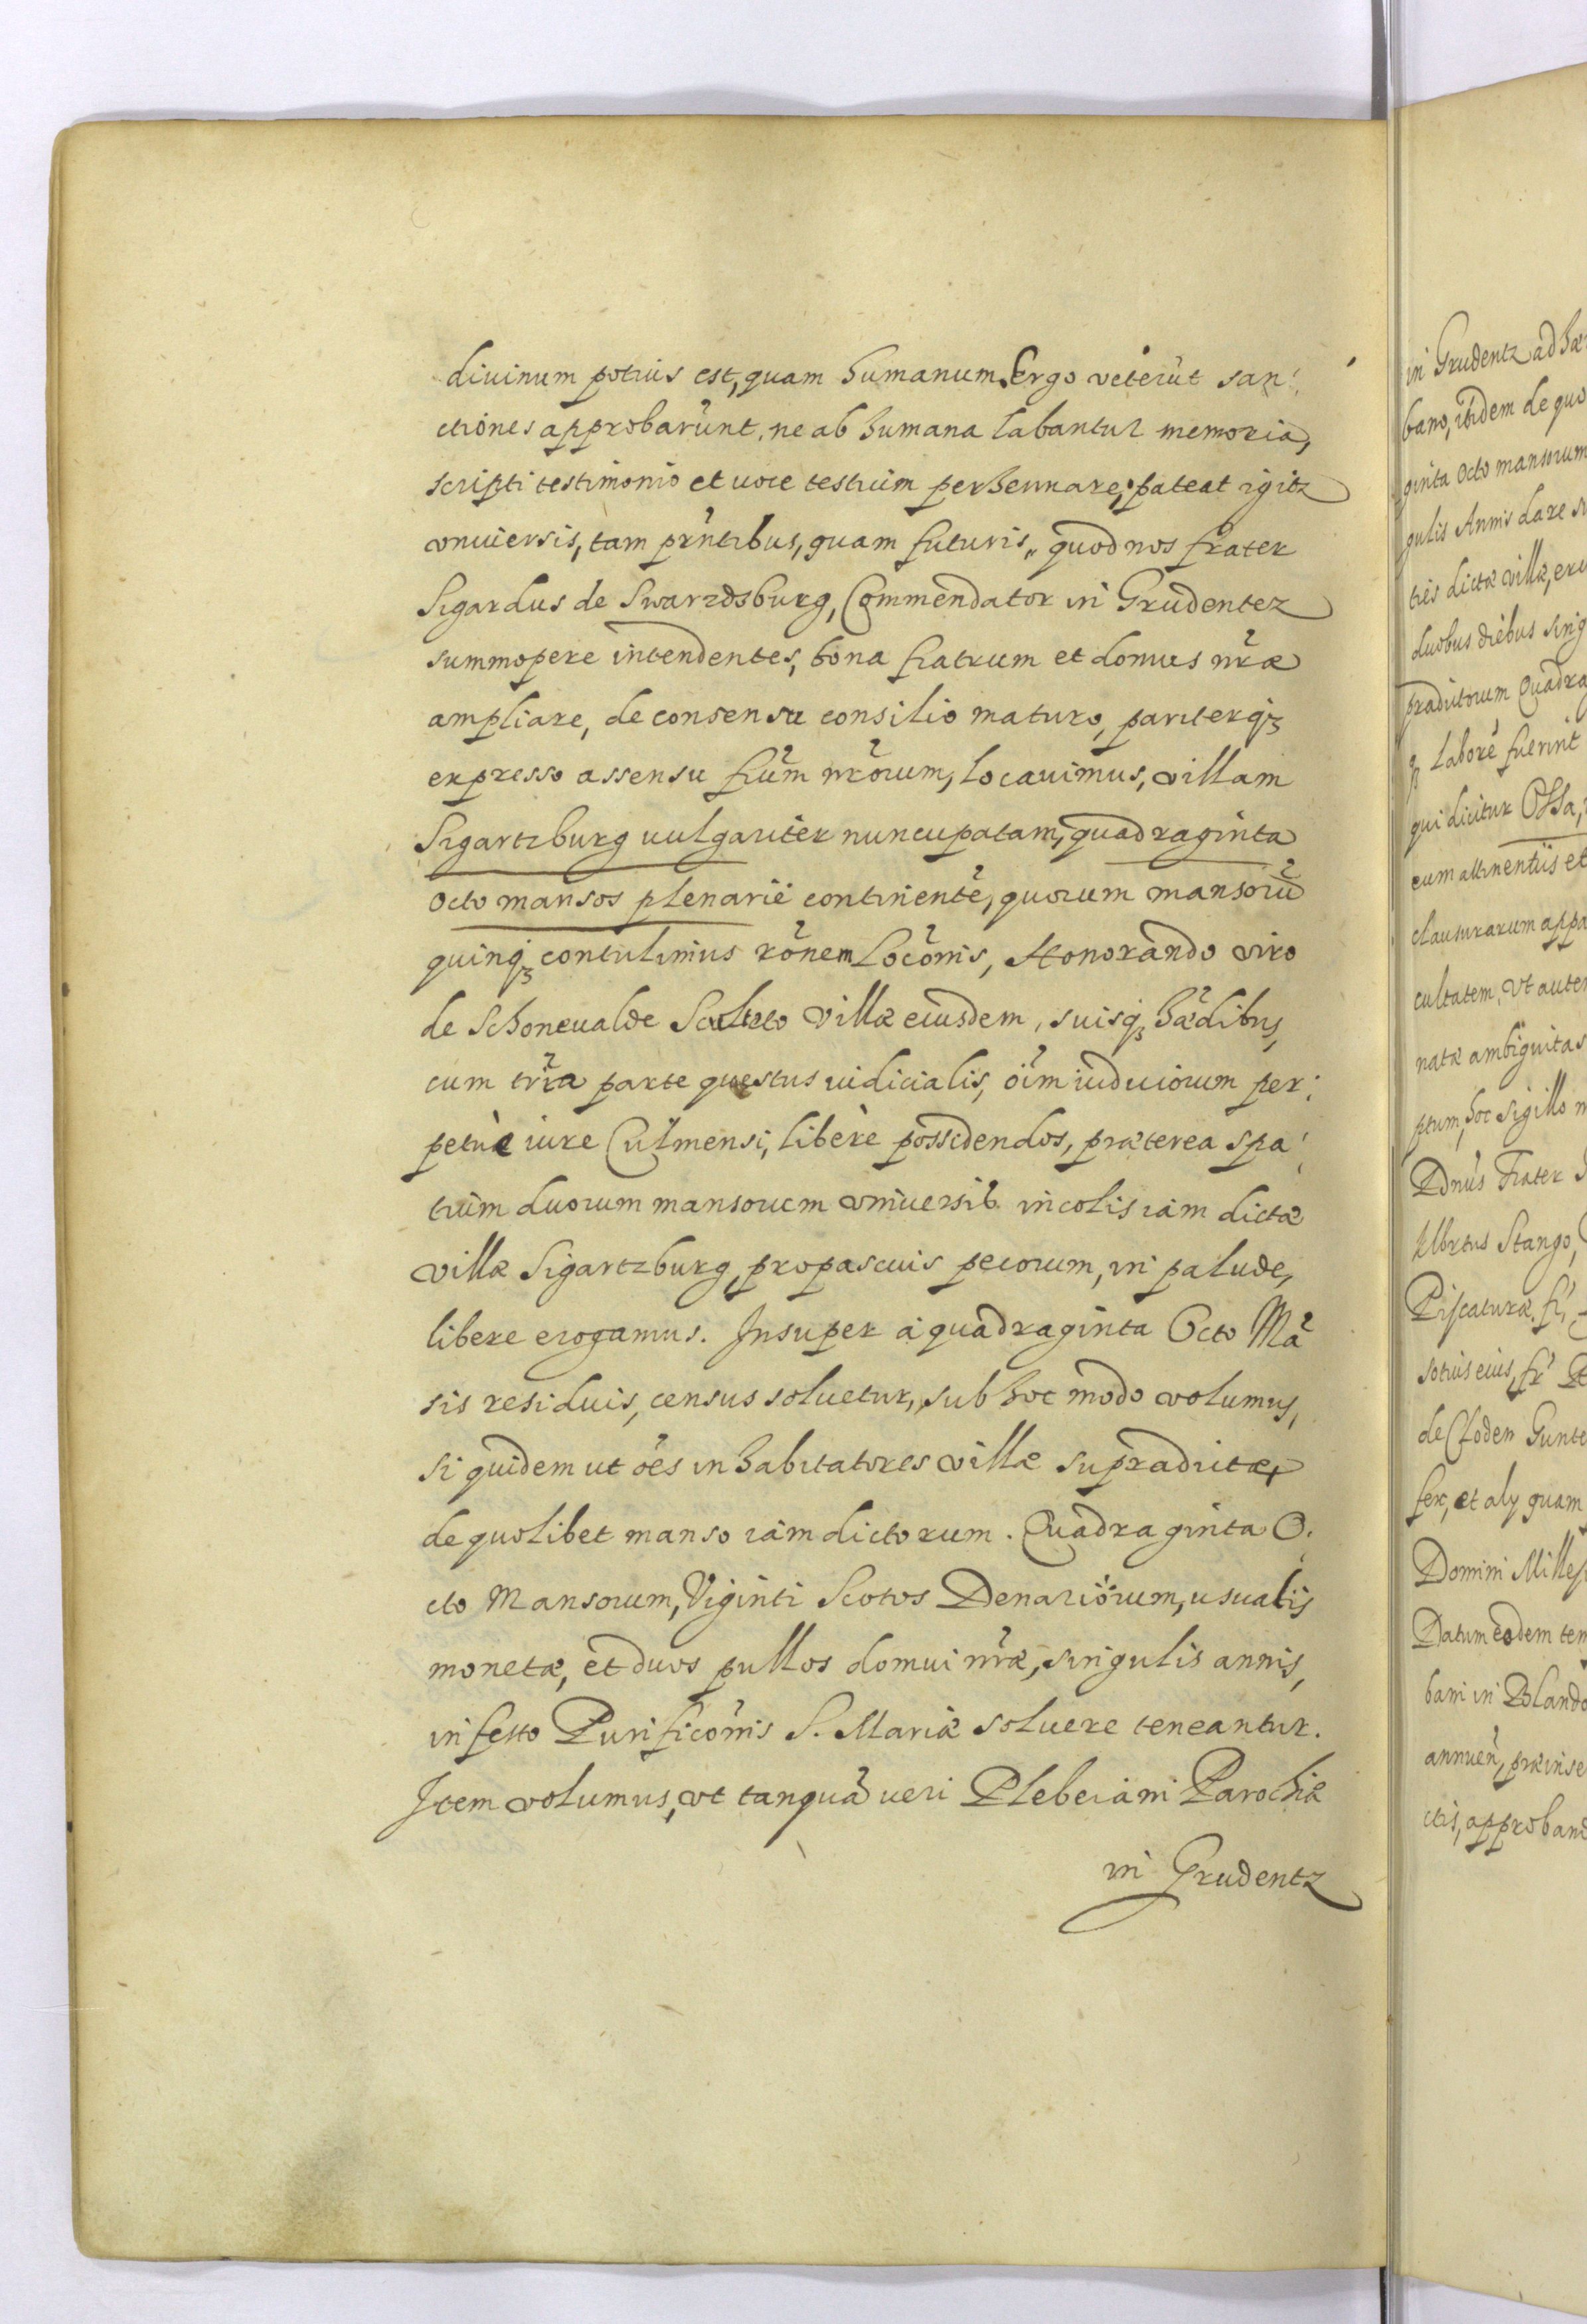 diuinum potius est, quam humanum. Ergo veterũt san:
ctiones approbarũnt, ne ab humana labantur memoria,
scripti testimonio et uoce testium perhennare; pateat igitz
vniuersis, tam prñtibus, quam futuris, quod nos frater
Sigardus de Swarzdsburg, Commendator in Grudentez
summopere intendentes, bona fratrum et domus nr̃æ
ampliare, de consensu consilio maturo, pariterqz
expresso assensu frũm nr̃orum, locauimus, villam
Sigartzburg uulgariter nuncupatam, quadraginta
octo mansos plenarie continentẽ, quorum mansorũ
quinqz contulimus rõnem locõnis, Honorando viro
de Schoneualde Sculteto villæ eiusdem, suisqz hædibus,
cum tr̃ia parte questus iudicialis, oĩm iudiciorum per:
petuè iure Culmensi, liberè possidendos, præterea spa:
tium duorum mansorum vniuersib. incolis iam dictæ
villæ Sigartzburg, pro pascuis pecorum, in palude,
libere erogamus. Insuper à quadraginta Octo Mã
sis residuis, census soluetur, sub hoc modo volumus,
si quidem ut oẽs inhabitatores villæ supradictæ,
de quolibet manso iam dictorum. Quadraginta O:
cto Mansorum, Viginti Scotos Denariorum, usualis
monetæ, et duos pullos domui nr̃æ, singulis annis,
in festo Purificõnis S. Mariæ soluere teneantur.
Item volumus, vt tanquã ueri Plebeiani Parochiæ
in Grudentz
in Grudentz ad hæ
bano, ibidem de quo
ginta Octo mansorum
gulis Annis dare
ties dictæ villæ,
duobus diebus sing
prædictorum Quadra
labore fuerint
qui dicitur Ossa,
cum attinentiis et
clausurarum appa
cultatem, Vt aute
natæ ambiguitas
ptum, hoc Sigillo
Dnus Frater
Albrtus Stango,
Piscaturæ. fr,
sotius eius, fr
de Cloden Gunte
fer, et aly quam
Domini Milles
Datum eodem tem
bani in Polando
annuen, præinse
ctis, approband